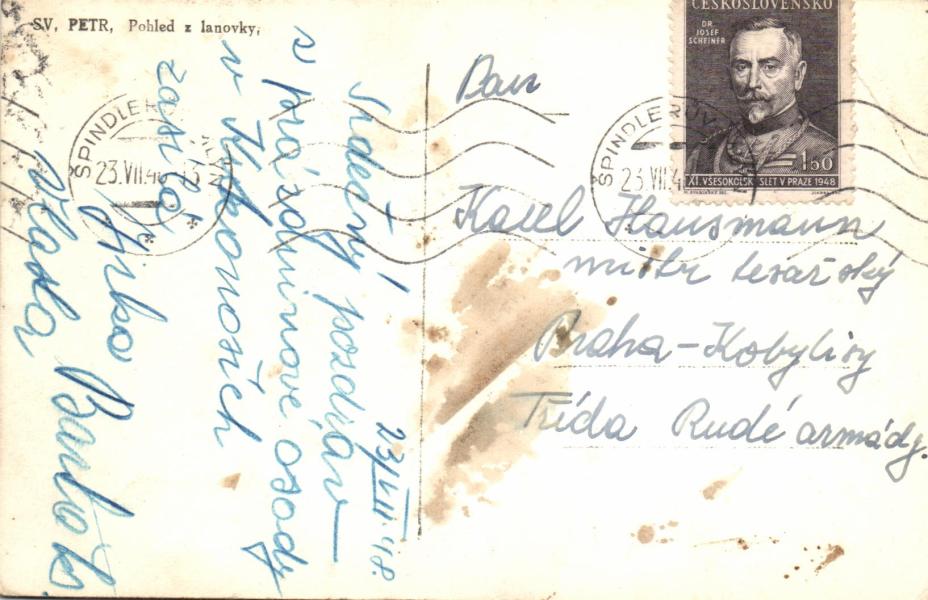 SV. PETR, Pohled z lanovky.
23/VII.48.
Srdečný pozdrav
s prázdninové osady
v Krkonoších
zasílá
Jirka Bartoš
Vlasta
ČESKOSLOVENSKO
DR.
JOSEF
SCHEINER
1.50
XI. VŠESOKOLSKÝ SLET V PRAZE 1948
ŠPINDLERŮV
23.VII.4
ŠPINDLER
MLÝN
23.VII.4
Pan
Karel Hausmann
mistr tesařský
Praha-Kobylisy
Třída Rudé armády.